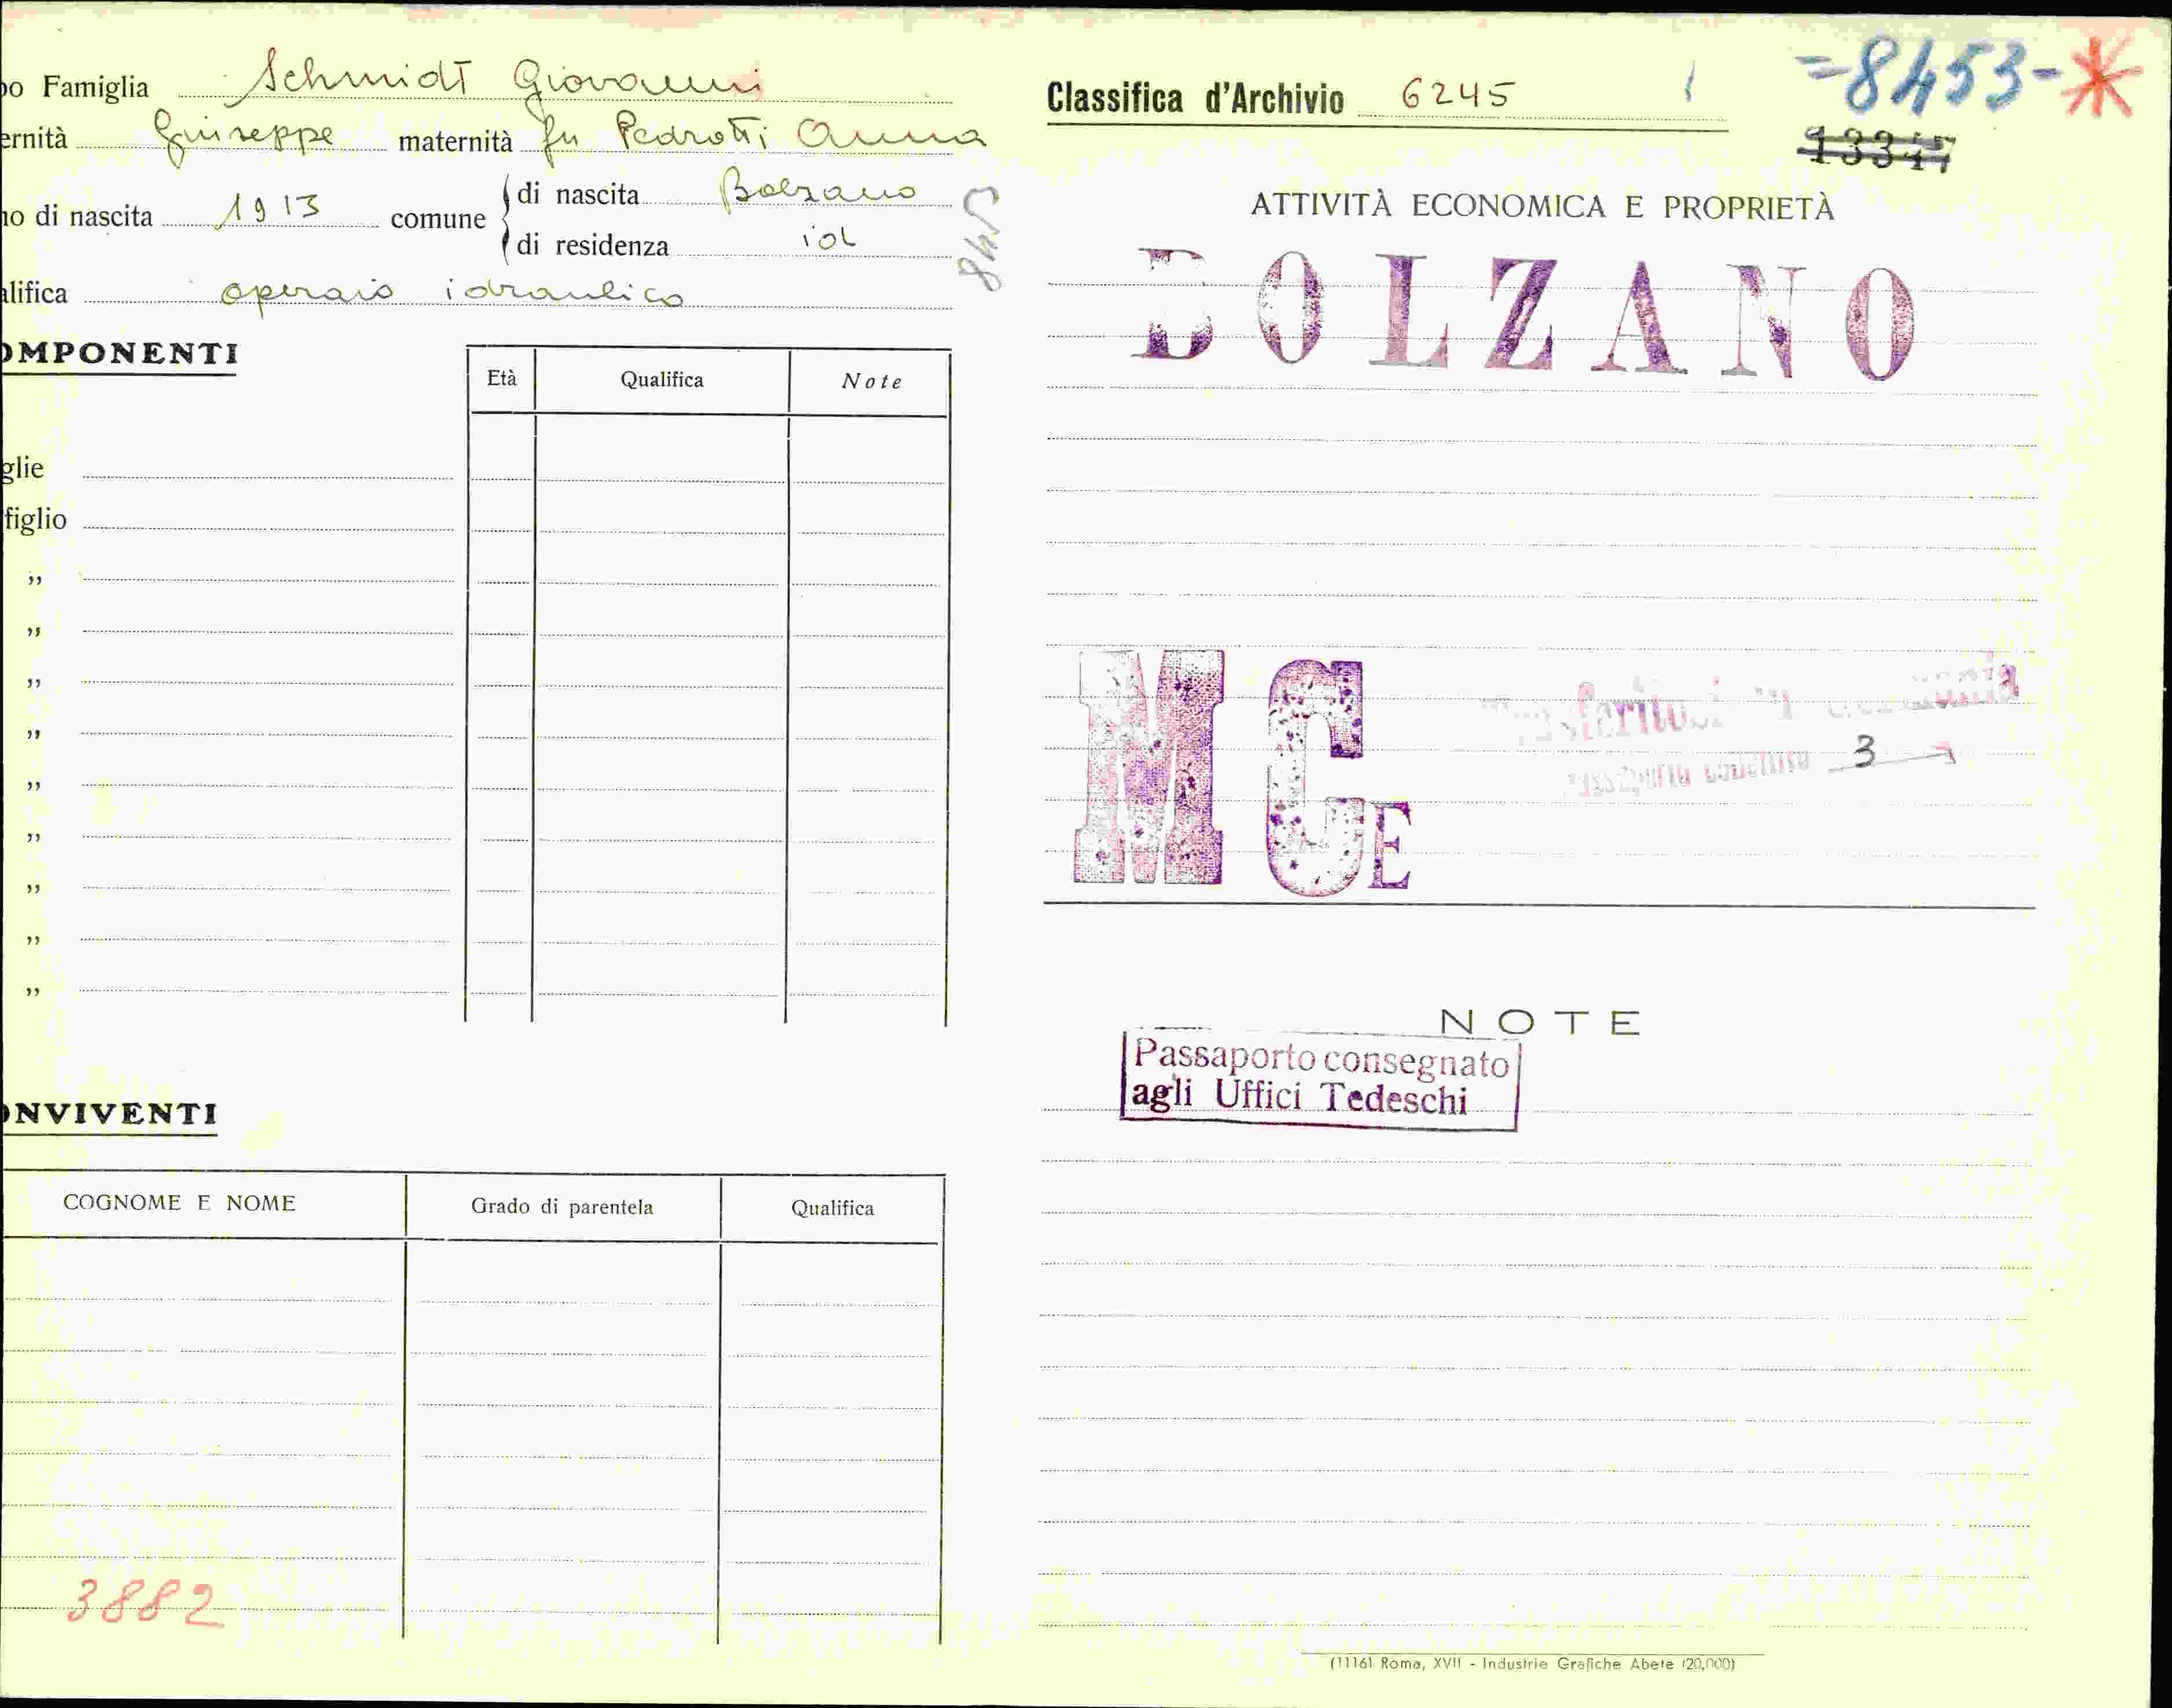 po Famiglia Schmidt Giovanni
ernità Giuseppe maternità fu Pedrotti Anna
no di nascita 1913 comune di nascita Bolzano
di residenza id
alifica operaio idraulico
OMPONENTI
Età Qualifica Note
glie
figlio
"
"
"
"
"
"
"
"
"
ONVIVENTI
COGNOME E NOME Grado di parentela Qualifica
3882
Classifica d'Archivio 6245
=8453-*
13347
ATTIVITÀ ECONOMICA E PROPRIETÀ
BOLZANO
MCE
Trasferitosi in Germania
3
NOTE
Passaporto consegnato
agli Uffici Tedeschi
(1116) Roma, XVII - Industrie Grafiche Abete (20,000)